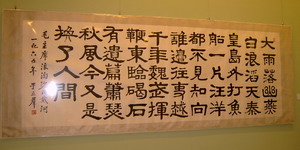 大雨落幽燕
白浪滔天秦
皇島外打魚
船一片汪洋
都不見知向
誰邊往事越
千年魏武揮
鞭東臨碣石
有遺篇蕭瑟
秋風今又是
換了人間
毛主席浪淘沙北戴河